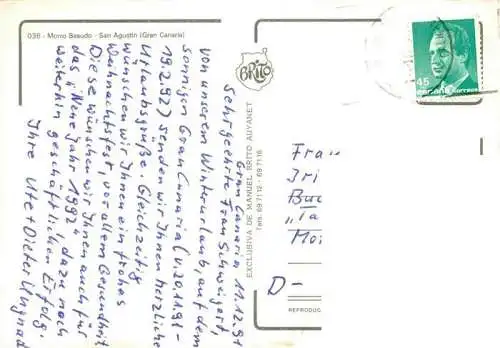 036 - Morro Besudo - San Agustin (Gran Canaria)
Gran Canaria 11.12.91
Sehrgeehrte Frau Schweigert,
von unserem Winterurlaub, auf dem
sonnigen Gran Canaria (v. 20.11.91 -
19.2.92) senden wir Ihnen herzliche
Urlaubsgrüße. Gleichzeitig
wünschen wir Ihnen ein frohes
Weihnachtsfest, vor allem Gesundheit
Diese wünschen wir Ihnen auch für
das "Neue Jahr 1992", dazu noch
weiterhin geschäftlichen Erfolg.
Ihre Ute + Dieter
BRITO
EXCLUSIVA DE MANUEL BRITO AUYANET
Tels. 69 71 12 - 69 71 16
45
ESPAÑA CORREOS
Frau
Iri
"Ta
D-
REPRODUC